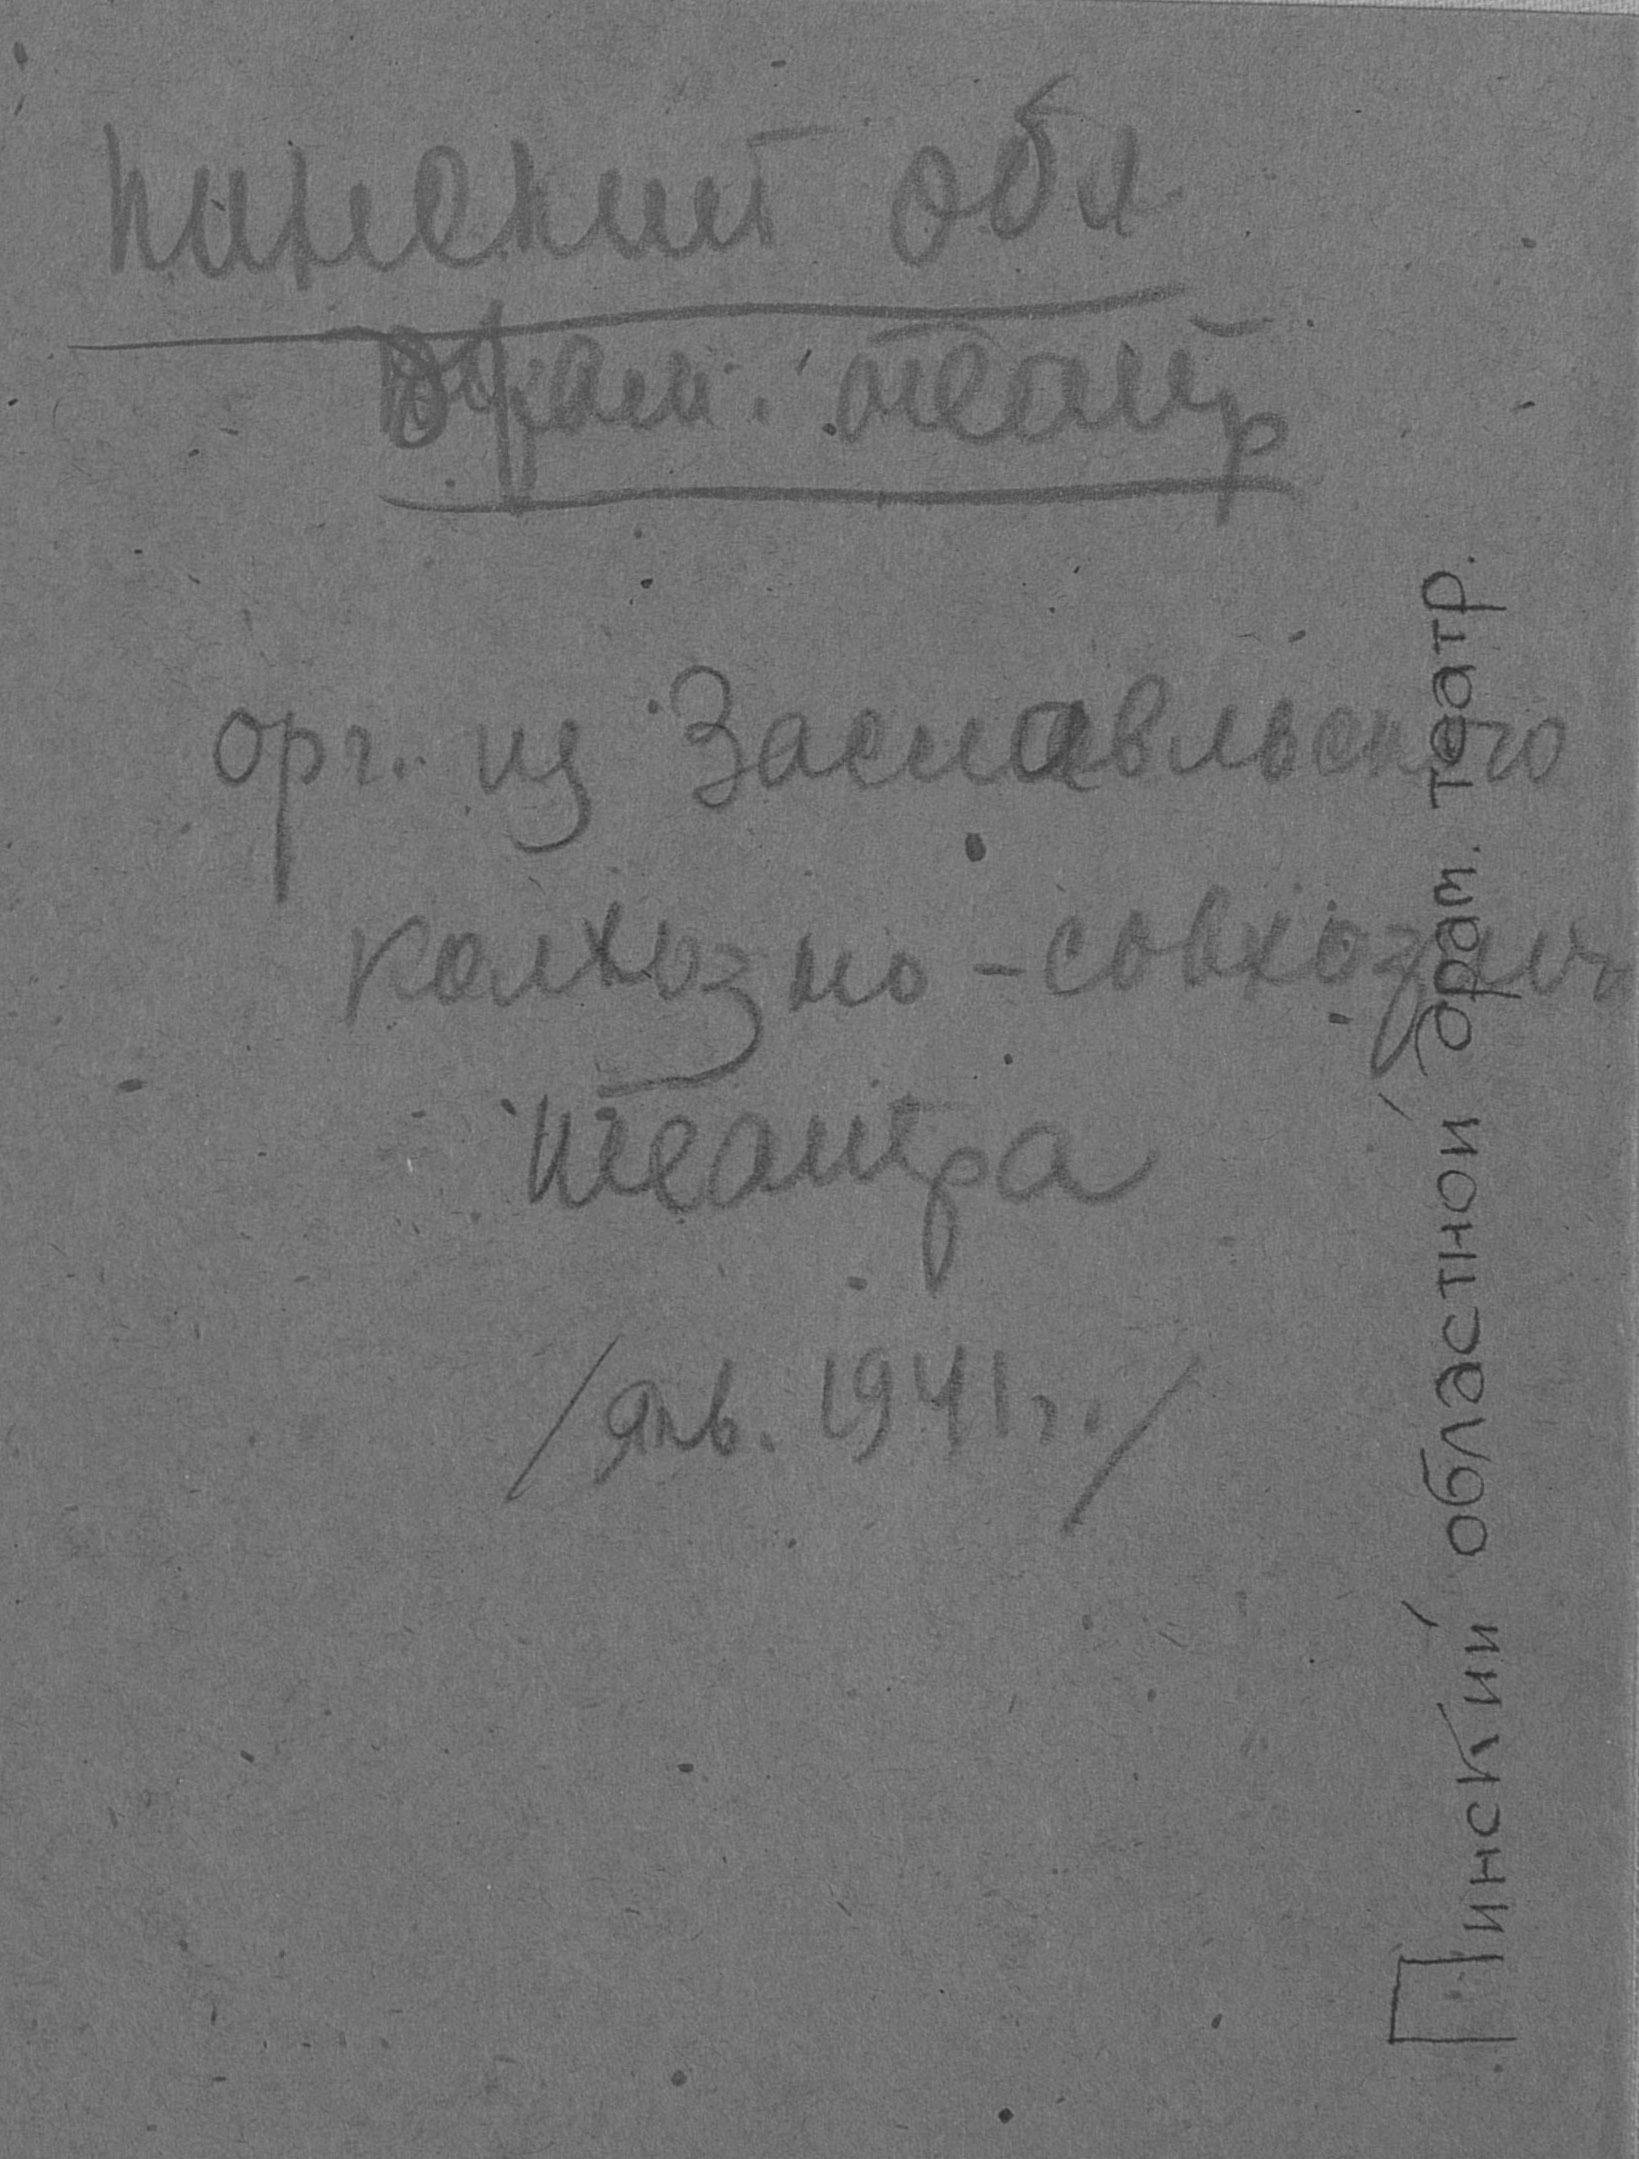 Пинский обл.
Драм. театр
орг. из Заславльского
колхозно-совхозног
театра
/янв. 1941 г./
Пинский областной драм. театр.